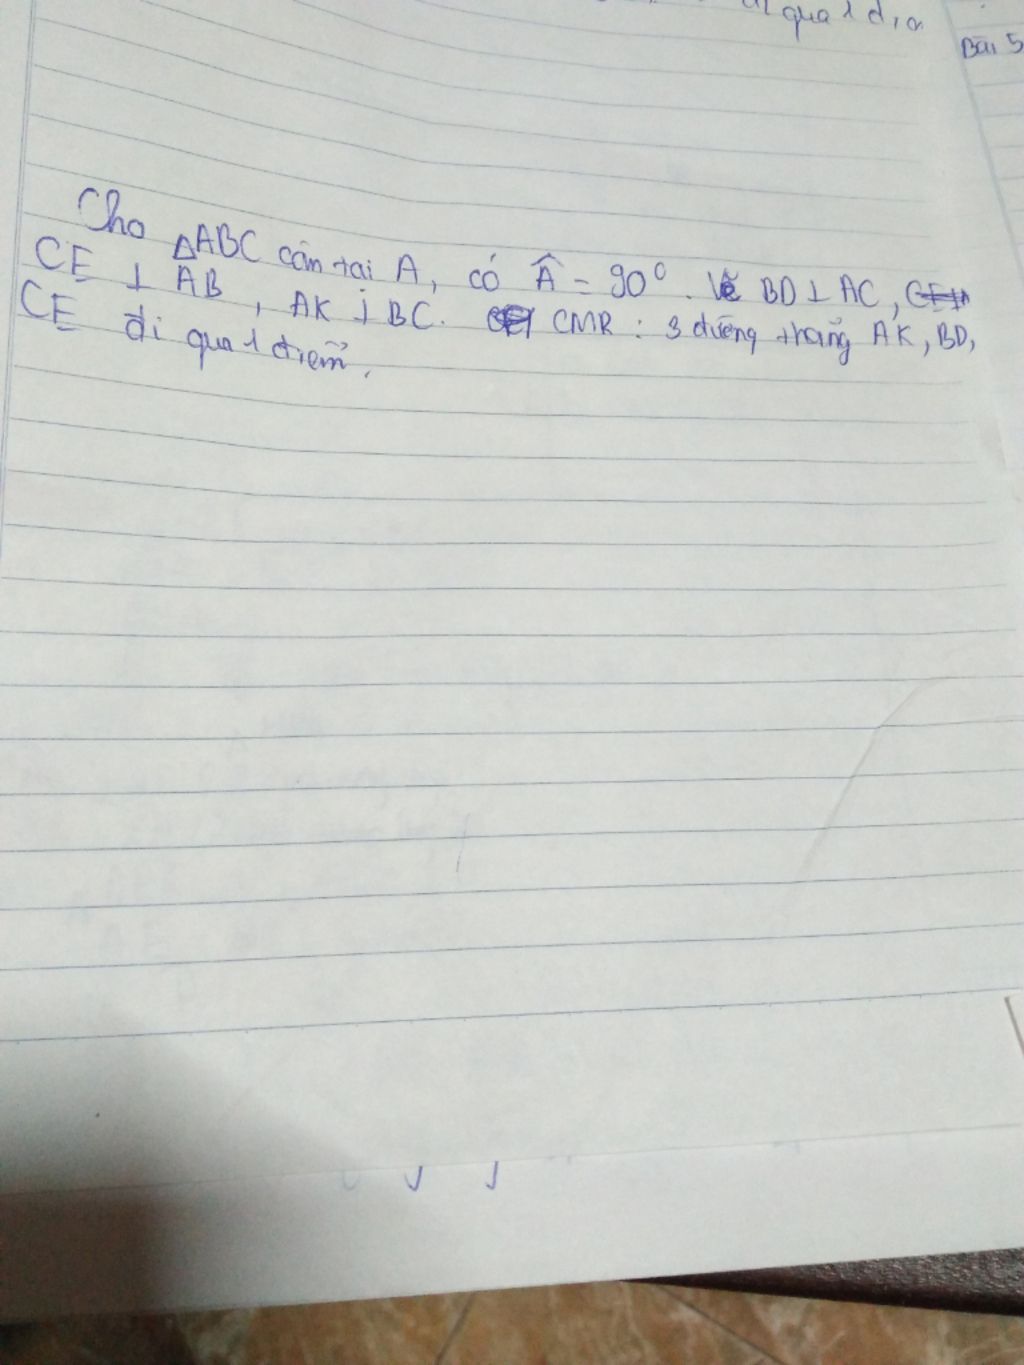 qua 1 điể
Bài 5
Cho ΔABC cân tại A, có Â = 90°. Vẽ BD ⊥ AC,
CE ⊥ AB, AK ⊥ BC. CMR: 3 đường thẳng AK, BD,
CE đi qua 1 điểm.